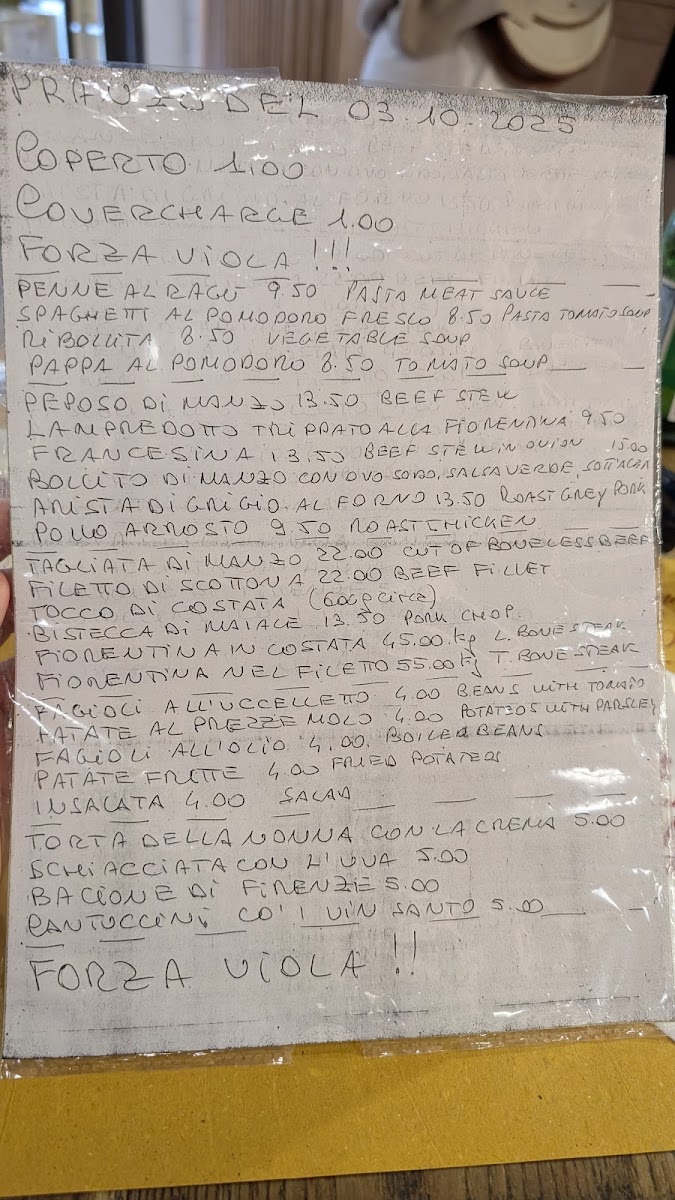 PRANZO DEL 03.10.2025
COPERTO 1.00
COVERCHARGE 1.00
FORZA VIOLA !!!
PENNE AL RAGÙ 9.50 PASTA MEAT SAUCE
SPAGHETTI AL POMODORO FRESCO 8.50 PASTA TOMATO SOUP
RIBOLLITA 8.50 VEGETABLE SOUP
PAPPA AL POMODORO 8.50 TOMATO SOUP
PEPOSO DI MANZO 13.50 BEEF STEW
LAMPREDOTTO TRIPPATO ALLA FIORENTINA 9.50
FRANCESINA 13.50 BEEF STEW IN ONION 15.00
BOLLITO DI MANZO CON OVO SODO, SALSA VERDE, SOTTACETI
ARISTA DI GRIGIO AL FORNO 13.50 ROAST GREY PORK
POLLO ARROSTO 9.50 ROAST CHICKEN
TAGLIATA DI MANZO 22.00 CUT OF BONELESS BEEF
FILETTO DI SCOTTONA 22.00 BEEF FILLET
TOCCO DI COSTATA (600g circa)
BISTECCA DI MAIALE 13.50 PORK CHOP
FIORENTINA IN COSTATA 45.00 kg L. BONE STEAK
FIORENTINA NEL FILETTO 55.00 kg T. BONE STEAK
FAGIOLI ALL'UCCELLETTO 4.00 BEANS WITH TOMATO
PATATE AL PREZZEMOLO 4.00 POTATEOS WITH PARSLEY
FAGIOLI ALL'OLIO 4.00. BOILED BEANS
PATATE FRITTE 4.00 FRIED POTATEOS
INSALATA 4.00 SALAD
TORTA DELLA NONNA CON LA CREMA 5.00
SCHIACCIATA CON L'UVA 5.00
BACIONE DI FIRENZE 5.00
CANTUCCINI CO' I VIN SANTO 5.00
FORZA VIOLA !!